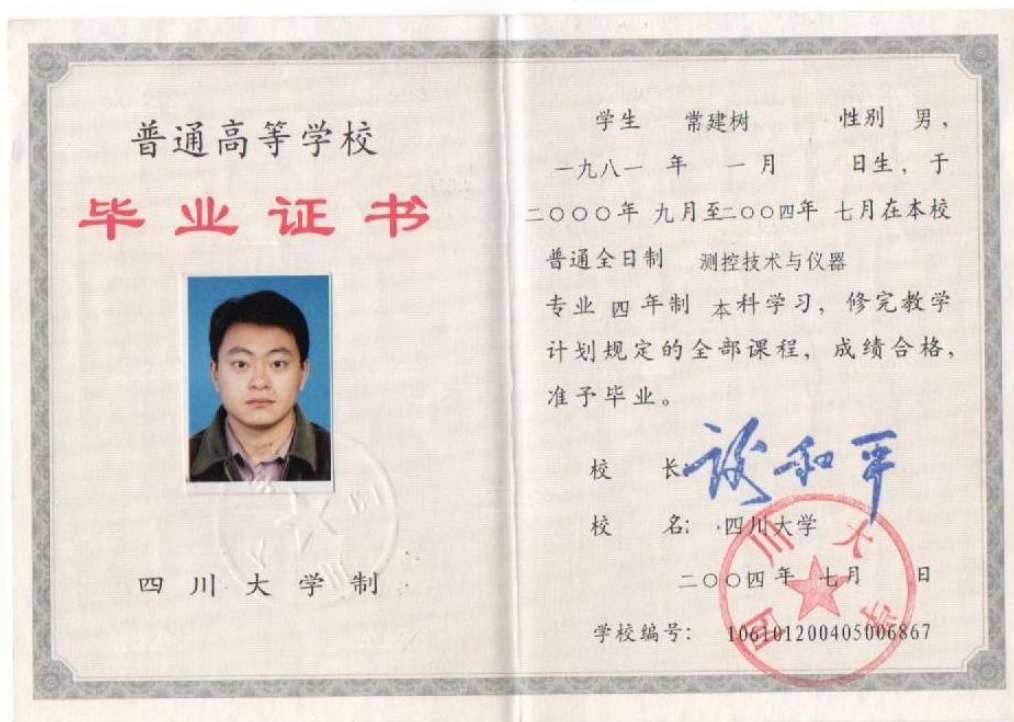 普通高等学校
毕业证书
四川大学制
学生 常建树 性别 男，
一九八一 年 一月 日生，于
二〇〇〇年 九月至二〇〇四年 七月在本校
普通全日制 测控技术与仪器
专业 四年制 本科学习，修完教学
计划规定的全部课程，成绩合格，
准予毕业。
校 长 谢和平
校 名: 四川大学
二〇〇四年 七月 日
学校编号: 106101200405006867
四川大学